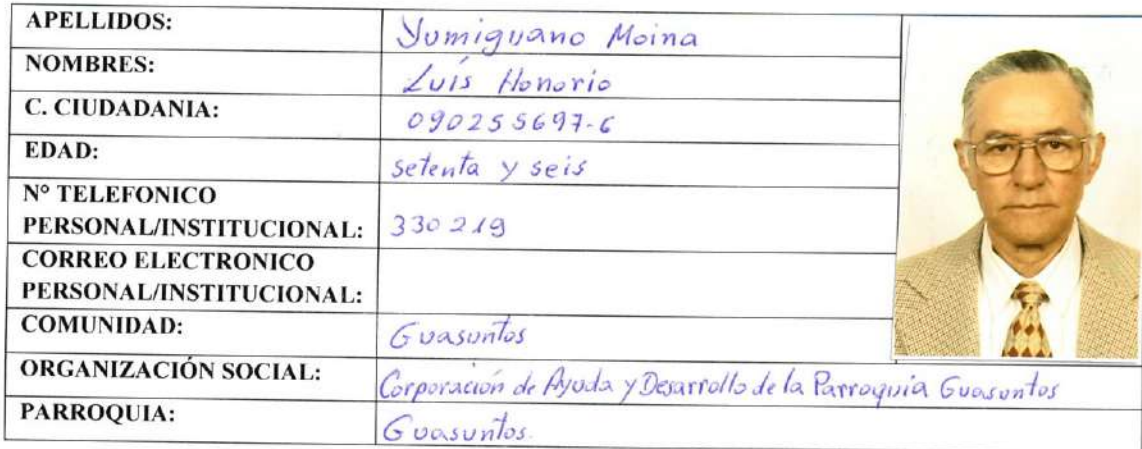 APELLIDOS: Yumiguano Moina
NOMBRES: Luís Honorio
C. CIUDADANIA: 090255697-6
EDAD: setenta y seis
N° TELEFONICO
PERSONAL/INSTITUCIONAL: 330219
CORREO ELECTRONICO
PERSONAL/INSTITUCIONAL:
COMUNIDAD: Guasuntos
ORGANIZACIÓN SOCIAL: Corporación de Ayuda y Desarrollo de la Parroquia Guasuntos
PARROQUIA: Guasuntos.